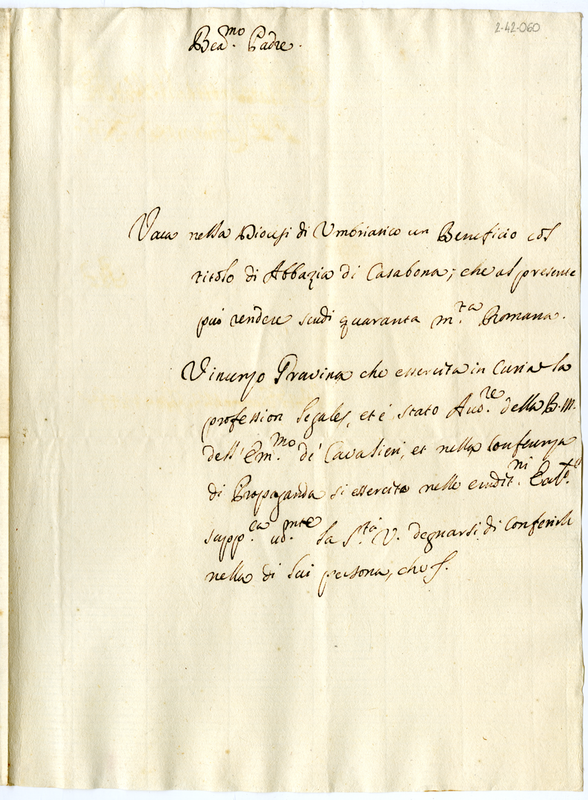 2-42-060
Bea.mo Padre.
Vaca nella Diocesi di Umbriatico un Beneficio col
titolo di Abbazia di Casabona; che al presente
può rendere scudi quaranta m.ta Romana.
Vincenzo Pravina che essercita in Curia la
profession legale, et è stato Aud.re della B. M.
dell' Em.mo de' Cavalieri, et nella Conferenza
di Propaganda si essercita nelle erudit.ni
supp.ca um.nte la S.tà V. degnarsi di Conferirle
nella di lui persona, che